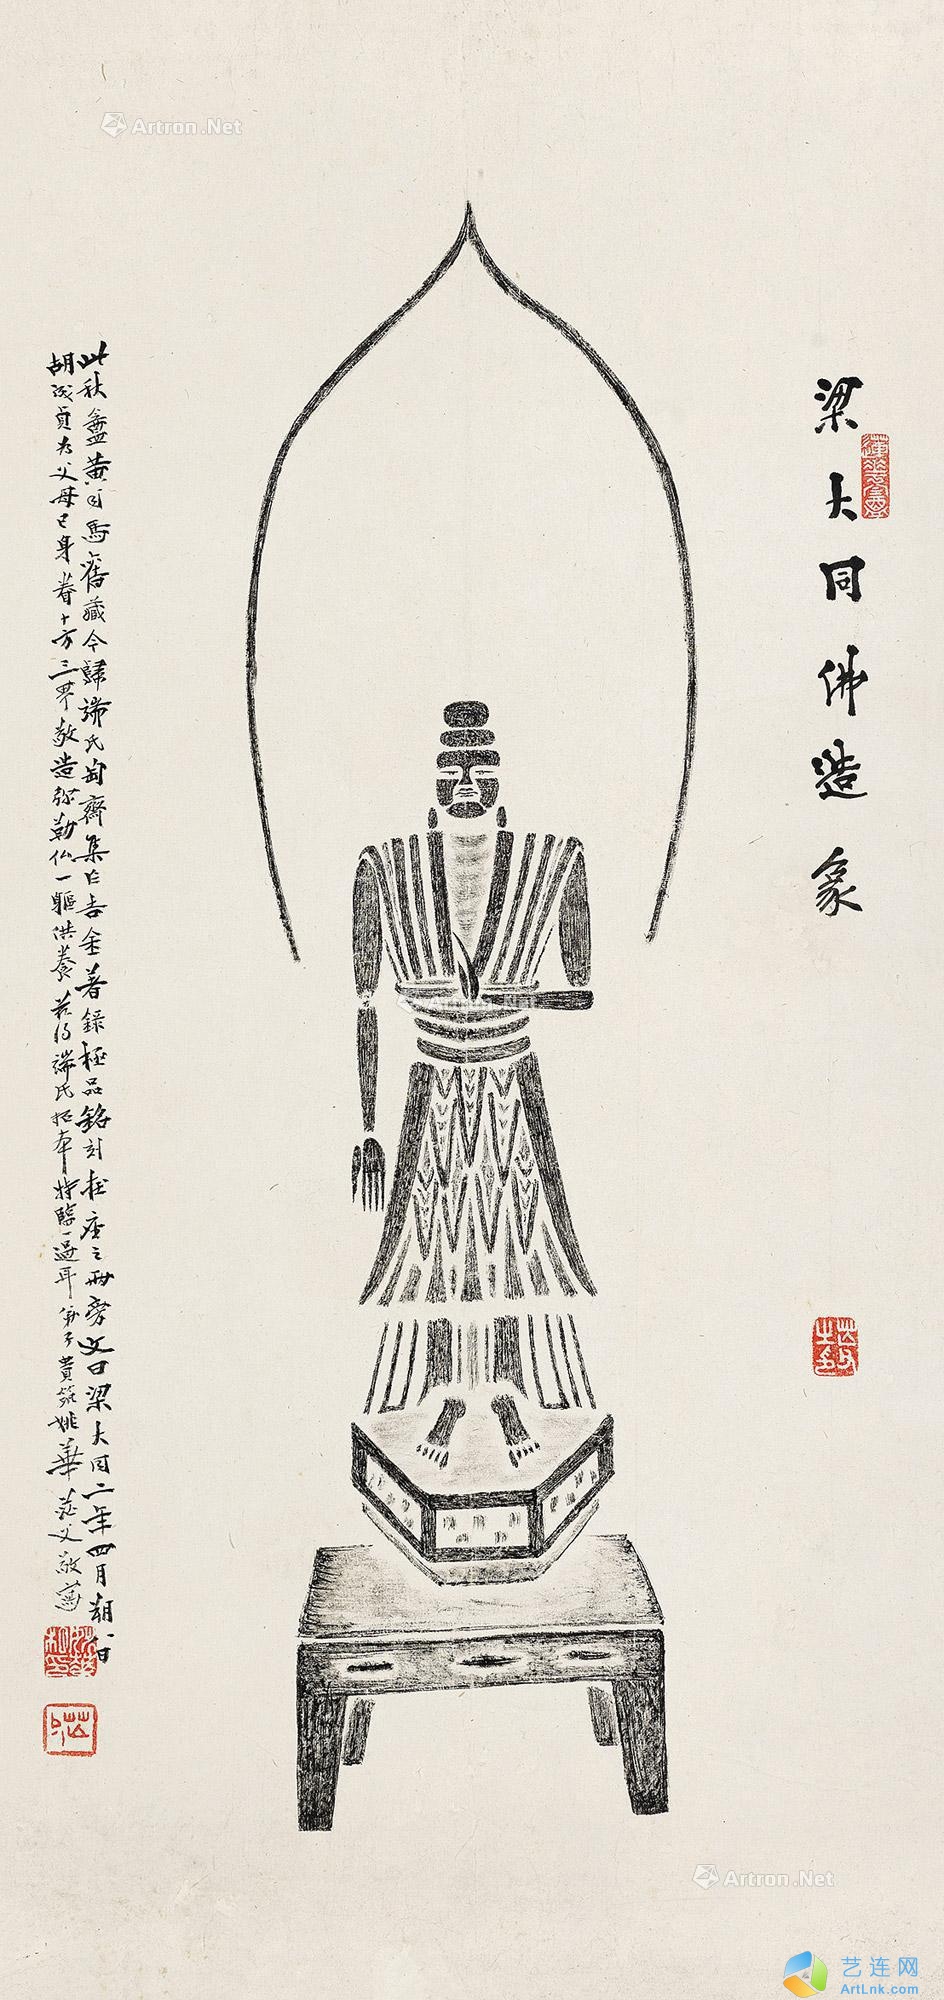 梁大同佛造象
此秋盦黃司馬舊藏今歸端氏匋齋集吉金著錄極品銘刻在座之兩旁文曰梁大同二年四月朔八日
胡茂貞為父母己身眷十方三界敬造弥勒仏一軀供養茫得端氏拓本特臨一過耳弟子貴筑姚華茫父敬寫
Artron.Net
Artron.Net
Artron.Net
艺连网
ArtLnk.com